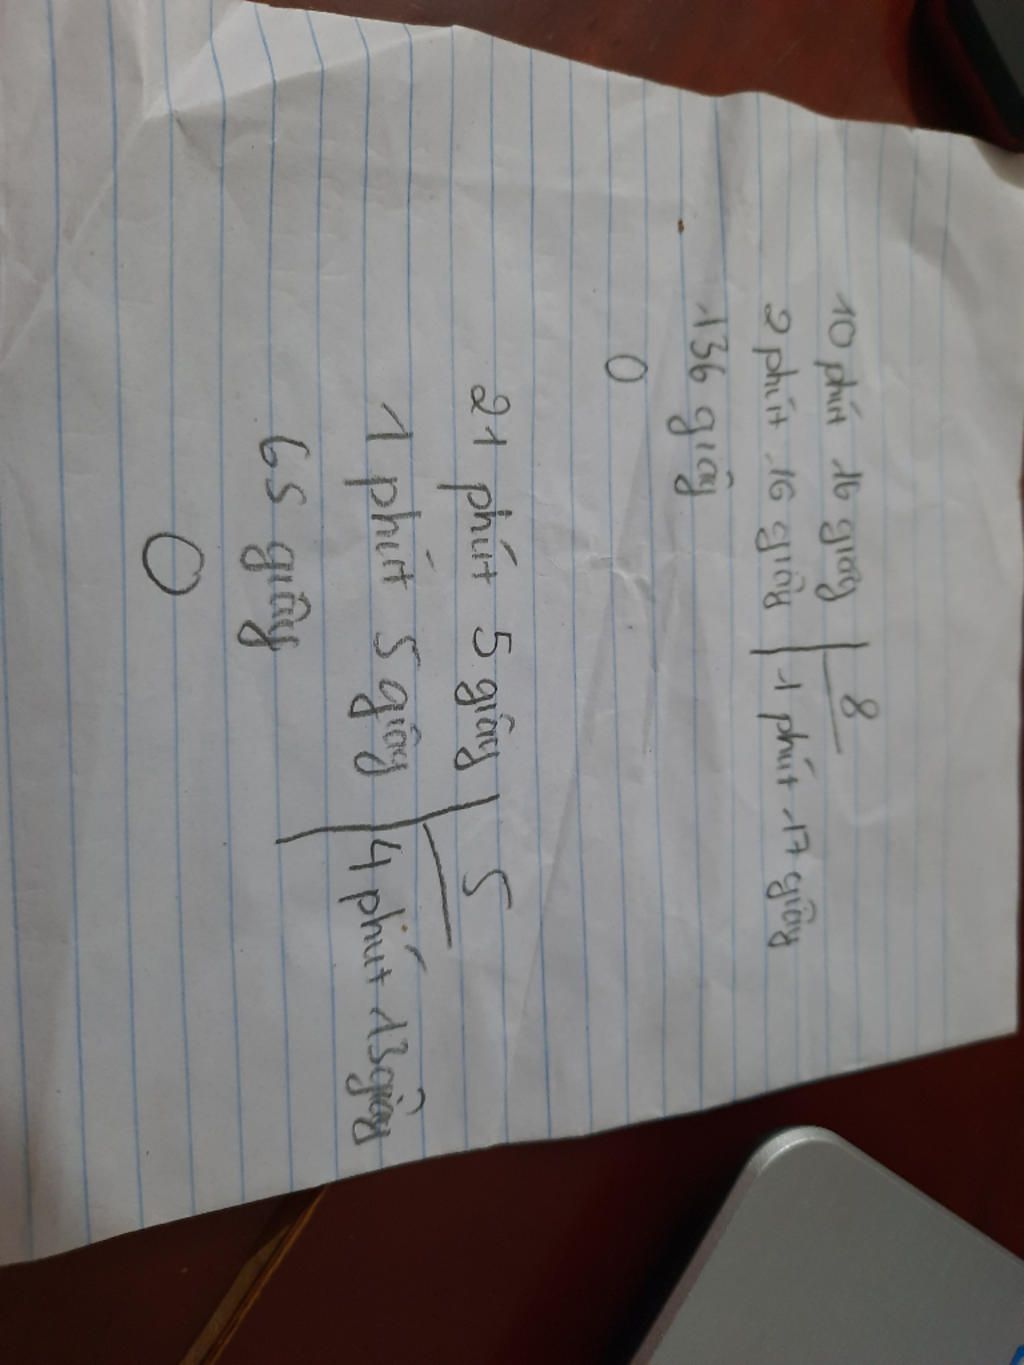 10 phút 16 giây 8
2 phút 16 giây 1 phút 17 giây
136 giây
0
21 phút 5 giây 5
1 phút 5 giây 4 phút 13 giây
65 giây
0